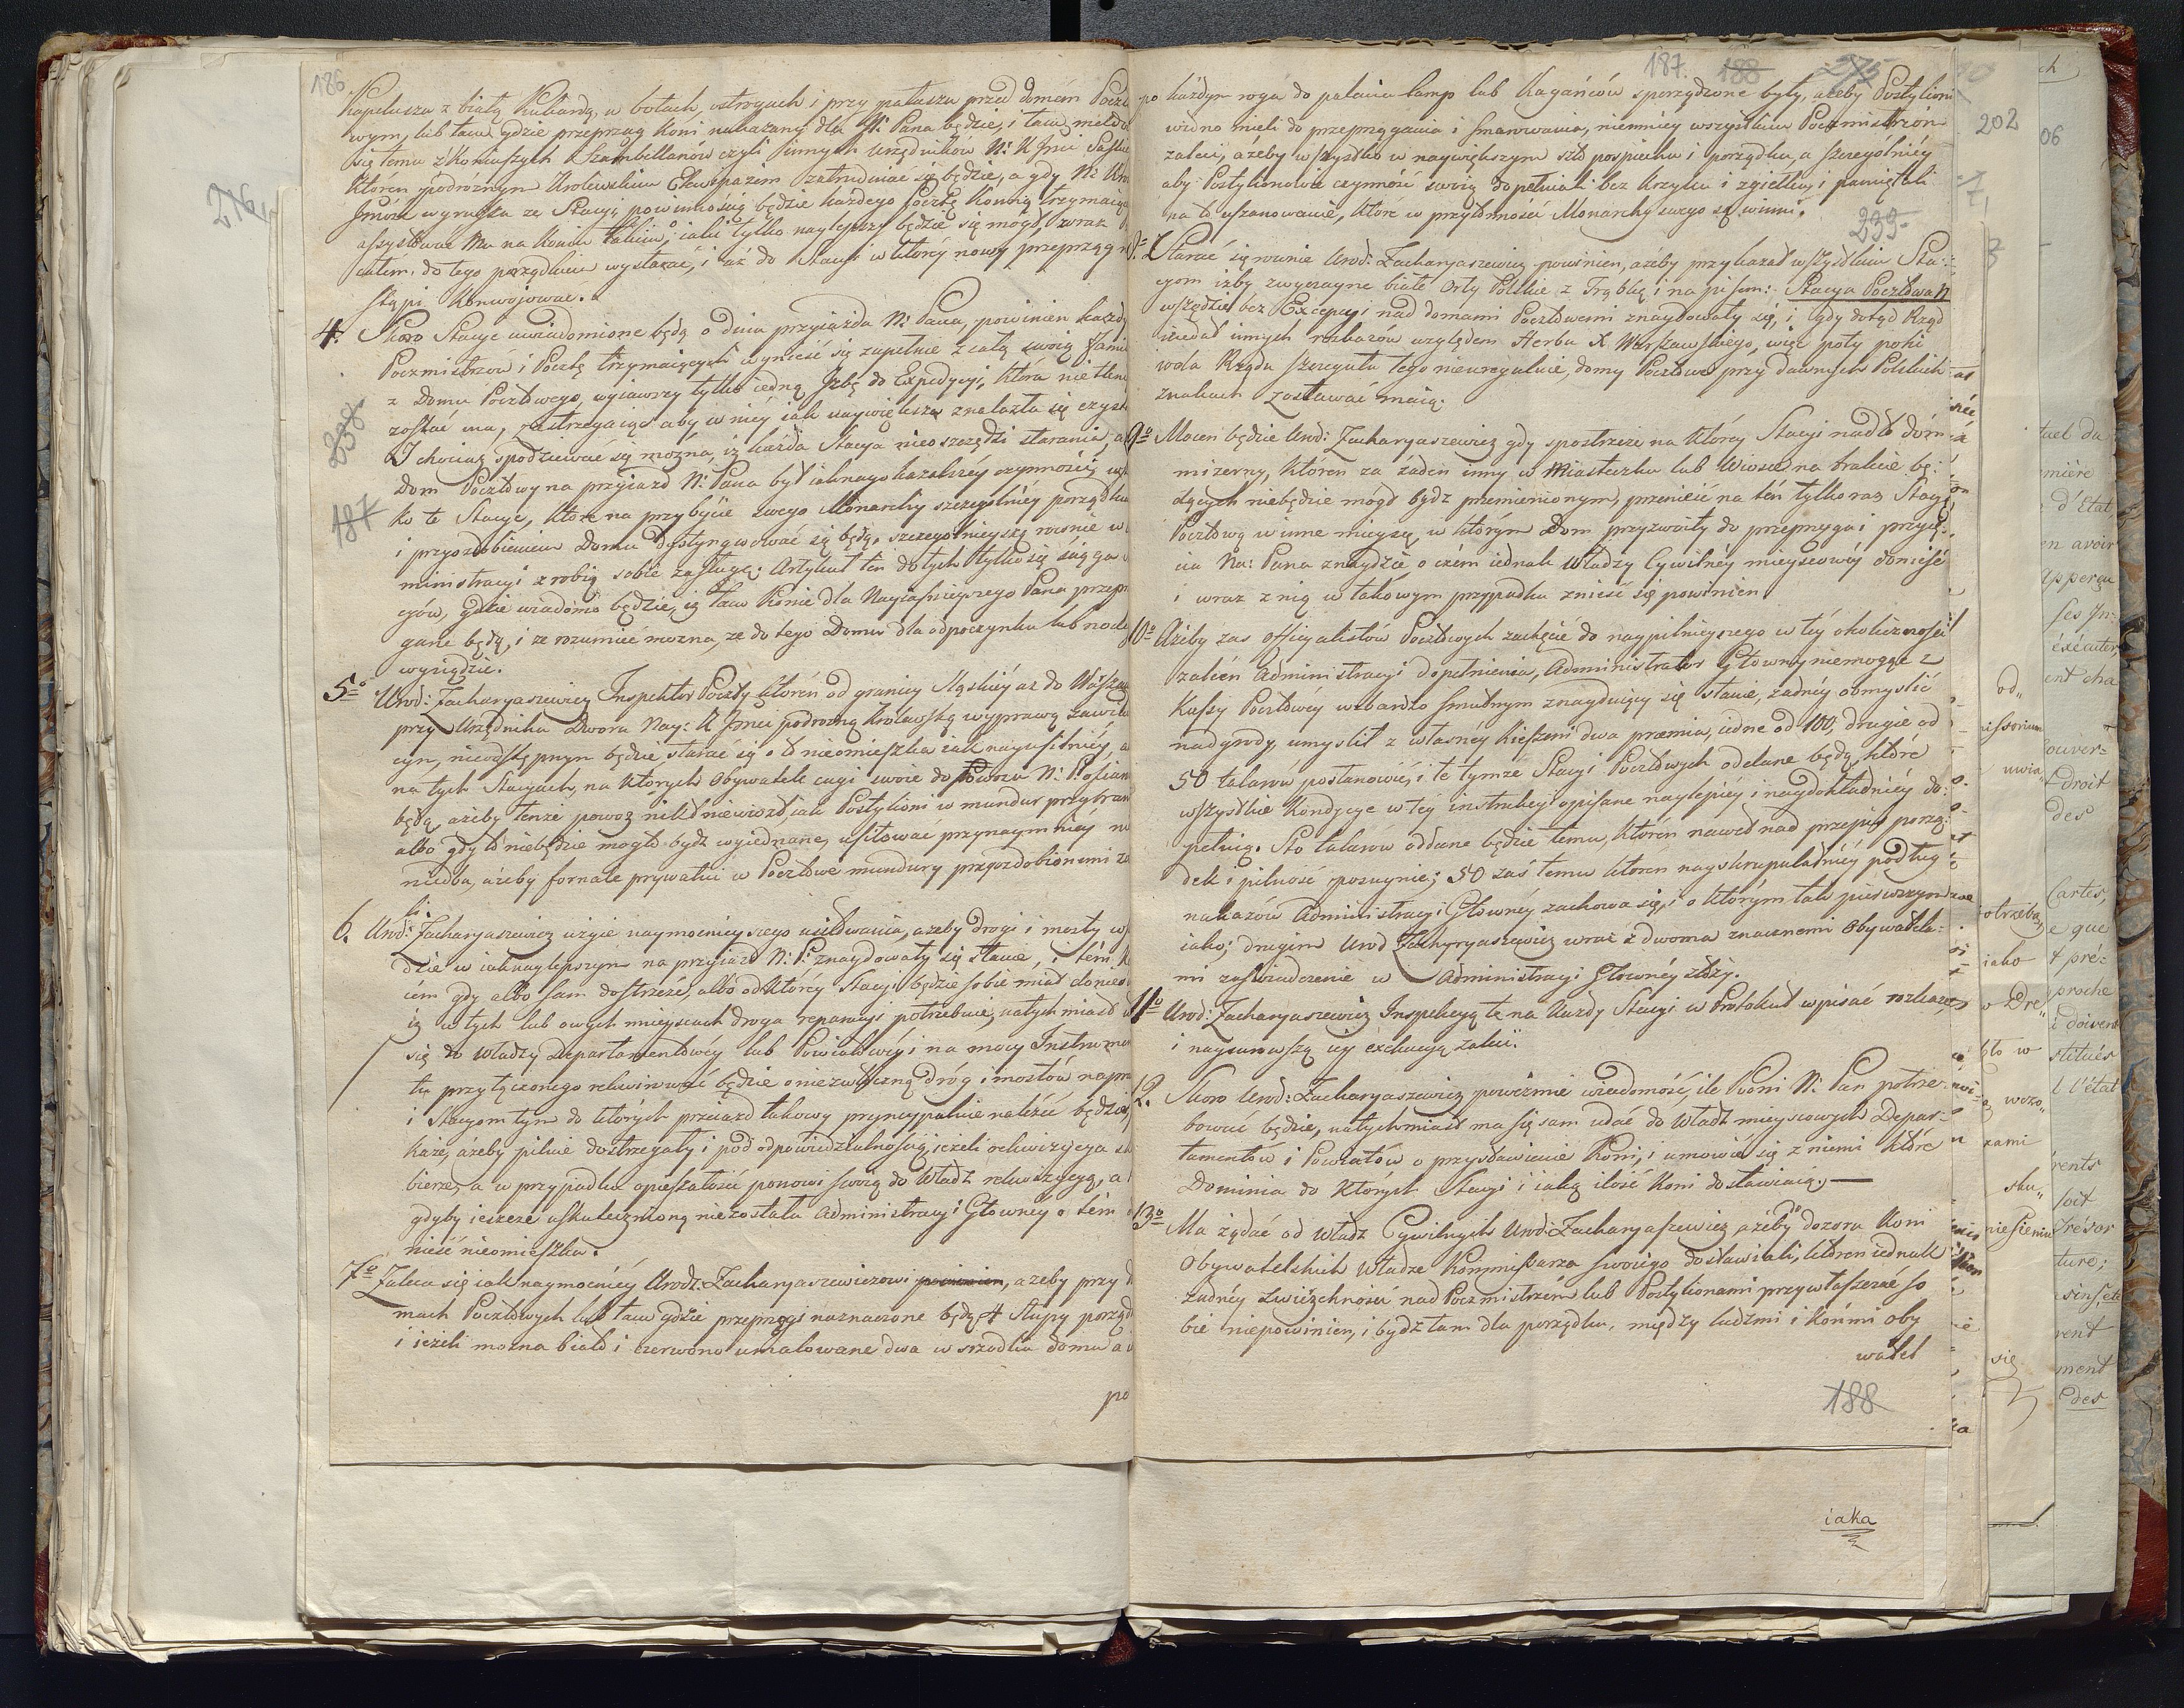 186
Kapeluszu z białą Kukardą, w botach, ostrogach i przy pałaszu przed domem Poczt
wym, lub tam gdzie przeprząg Koni nakazany dla N: Pana będzie, i tam meldo
się temu z Koniuszych Szambellanów czyli innych Urzędników N: K Jmci Saskie
Któren podróżnym Krolewskim Ekwipażem zatrudniać się będzie, a gdy N: Kr
Jmość wyrusza ze Stacyi powinnością będzie każdego Pocztę Konną trzymaiąc
assystować Mu na Koniu takim, iaki tylko naylepszy będzie się mógł, wraz
całem do tego porządkiem wystarać, i aż do Stacyi w któréy nowy przeprząg n
stąpi Konwojować.
4. Skoro Stacye uwiadomione będą o dniu przyiazdu N: Pana, powinien każdy
Poczmistrzów i Pocztę trzymaiących wynieść się zupełnie z całą swoią Fami
z Domu Pocztowego, wyiąwszy tylko iedną Izbę do Expedycyi, która nietkn
zostać ma, zastrzegaiąc aby w niéy iak naywiększa znalazła się czyst
I chociaż spodziewać się można, iż każda Stacya nieoszczędzi starania, a
Dom Pocztowy na przyiazd N: Pana był iaknayokazalszéy czynności,
ko te Stacye, które na przybycie swego Monarchy szczególniéy porządku
i przyozdobieniem Domu dystyngwować się będą, szczególnieyszą rownie w
ministracyi zrobią sobie zasługę: Artykuł ten do tych tylko się ściąga
cyów, gdzie wiadomo będzie, iż tam Konie dla Nayiaśnieyszego Pana przepr
gane będą, i że rozumieć można, że do tego Domu dla odpoczynku lub nocle
wysiądzie.
238.
187
5º Urod: Zacharyaszewicz Inspektor Poczty któren od granicy Sląskiéy aż do Warsza
przy Urzędniku Dwora Nay: K Jmci podrożną Krolewską wyprawę zawia
cym, nieodstępnym będzie starać się o to nieomieszka iak nayusilniéy, a
na tych Stacyach, na których Obywatele cugi swoie do Powozu N: P. ofiar
będą, ażeby tenże powoz nikt niewiozł, iak Postylioni w mundur przybran
albo gdy to niebędzie mogło bydź wyiednane, usiłować przynaymniéy n
niedba, ażeby fornale prywatni w Pocztowe mundury przyozdobionemi zo
li.
6. Urod: Zacharyaszewicz użyie naymocnieyszego usiłowania, ażeby drogi i mosty w
dzie w iaknaylepszym na przyiazd N: P: znaydowały się stanie, i tém k
ićm gdy albo sam dostrzeże, albo od któréy Stacyi będzie sobie miał donies
iż w tych lub owych mieyscach droga reparacyi potrzebuie, natychmiast
się do Władzy Departamentowéy lub Powiatowéy i na mocy Instrume
tu przyłączonego rekwirować będzie o niezwłoczną dróg i mostów napr
i Stacyom tym do których przeiazd takowy pryncypalnie należéć będzie
każe, ażeby pilnie dostrzegały i pod odpowiedzialnością ieżeli rekwizycya sk
bierze, a w przypadku opieszałości ponowi swoią do Władz rekwizycyą, a
gdyby ieszcze uskutecznioną niezostała Administracyi Głownéy o tém
nieść nieomieszka.
7º Zaleca się iak naymocniéy Urodz: Zacharyaszewiczowi, ażeby przy d
mach Pocztowych lub tam gdzie przeprzęgi naznaczone będą 4 Słupy porząd
i ieżeli można biało i czerwono umalowane dwa w srzodku domu a
po
187. 188 275
po każdym rogu do palenia lamp lub Kagańców sporządzone były, ażeby Postylioni
widno mieli do przeprzęgania i smarowania, niemniéy wszystkim Poczmistrzóm
zaleci, ażeby wszystko w naywiększym szło pospiechu i porządku, a szczególniéy
aby Postylionowie czynność swoią dopełniali bez Krzyku i zgiełku, i pamiętali
na to uszanowanie, które w przytomności Monarchy swego są winni.
239.
8º Starać się rownie Urod: Zacharyaszewicz powinien, ażeby przykazał wszystkim Sta-
cyom iżby zwyczayne białe Orły Polskie z Trąbką i napisem: Stacya Pocztowa N
wszędzie bez Excepcyi nad domami Pocztowemi znaydowały się, i gdy dotąd Rząd
niedał innych rozkazów względem Herbu X. Warszawskiego, więc poty poki
wola Rządu szczegułu tego nieureguluie, domy Pocztowe przy dawnych Polskich
znakach zostawać maią.
9º Mocen będzie Urod: Zacharyaszewicz gdy spostrzeże na któréy Stacyi nadto dóm
mizerny, któren za żaden inny w Miasteczku lub Wiosce na trakcie bę-
dących niebędzie mógł bydź przemienionym, przenieść na ten tylko raz Stacyą
Pocztową w inne mieysce, w którym Dom przyzwoity do przeprzęga i przyię-
cia Na: Pana znaydzie o czém iednak Władzy Cywilnéy mieyscowéy donieść
i wraz z nią w takowym przypadku znieść się powinien.
10º Ażeby zas officyalistów Pocztowych zachęcić do naypilnieyszego w téy okoliczności
zaleceń Administracyi dopełnienia, Administrator Główny niemogąc z
Kassy Pocztowéy w bardzo smutnym znayduiący się stanie, żadnéy obmyślić
nadgrody, umyślił z własnéy kieszeni dwa præmia, iedne od 100, drugie od
50 talarów postanowić, i te tymże Stacyi Pocztowych oddane będą, które
wszystkie Kondycye w téy instrukcyi opisane naylepiéy i naydokładniéy do-
pełnią. Sto talarów oddane będzie temu, któren nawet nad przepis porzą-
dek i pilność posuynie; 50 zaś temu któren nayskrupulatniéy podług
nakazów Administracyi Głownéy zachowa się, i o którym tak pierwszym
iako; drugim Urod Zacharyaszewicz wraz z dwoma znacznemi Obywatela-
mi zaswiadczenie w Administracyi Głownéy złoży.
11º Urod: Zacharyaszewicz Inspekcyą tę na Każdy Stacyi w Protokuł wpisać rozkaże
i naysurowszą iéy exekucyą zaleci.
12. Skoro Urod: Zacharyaszewicz powezmie wiadomość, ile Koni N: Pan potrze-
bować będzie, natychmiast ma się sam udać do Władz mieyscowych Depar-
tamentów i Powiatów o przystawienie Koni, i umowić się z niemi które
Dominia do których Stacyi i iaką ilość Koni dostawiaią. —
13º Ma żądać od Władz Cywilnych Urod: Zacharyaszewicz ażeby do dozoru Koni
Obywatelskich Władze Kommissarza swoiego dostawiali, któren iednak
żadnéy zwierzchności nad Poczmistrzem lub Postylionami przywłaszczać so
bie niepowinien, i bydź tam dla porządku, między ludźmi i Końmi oby
watel
188
iaka
202
06